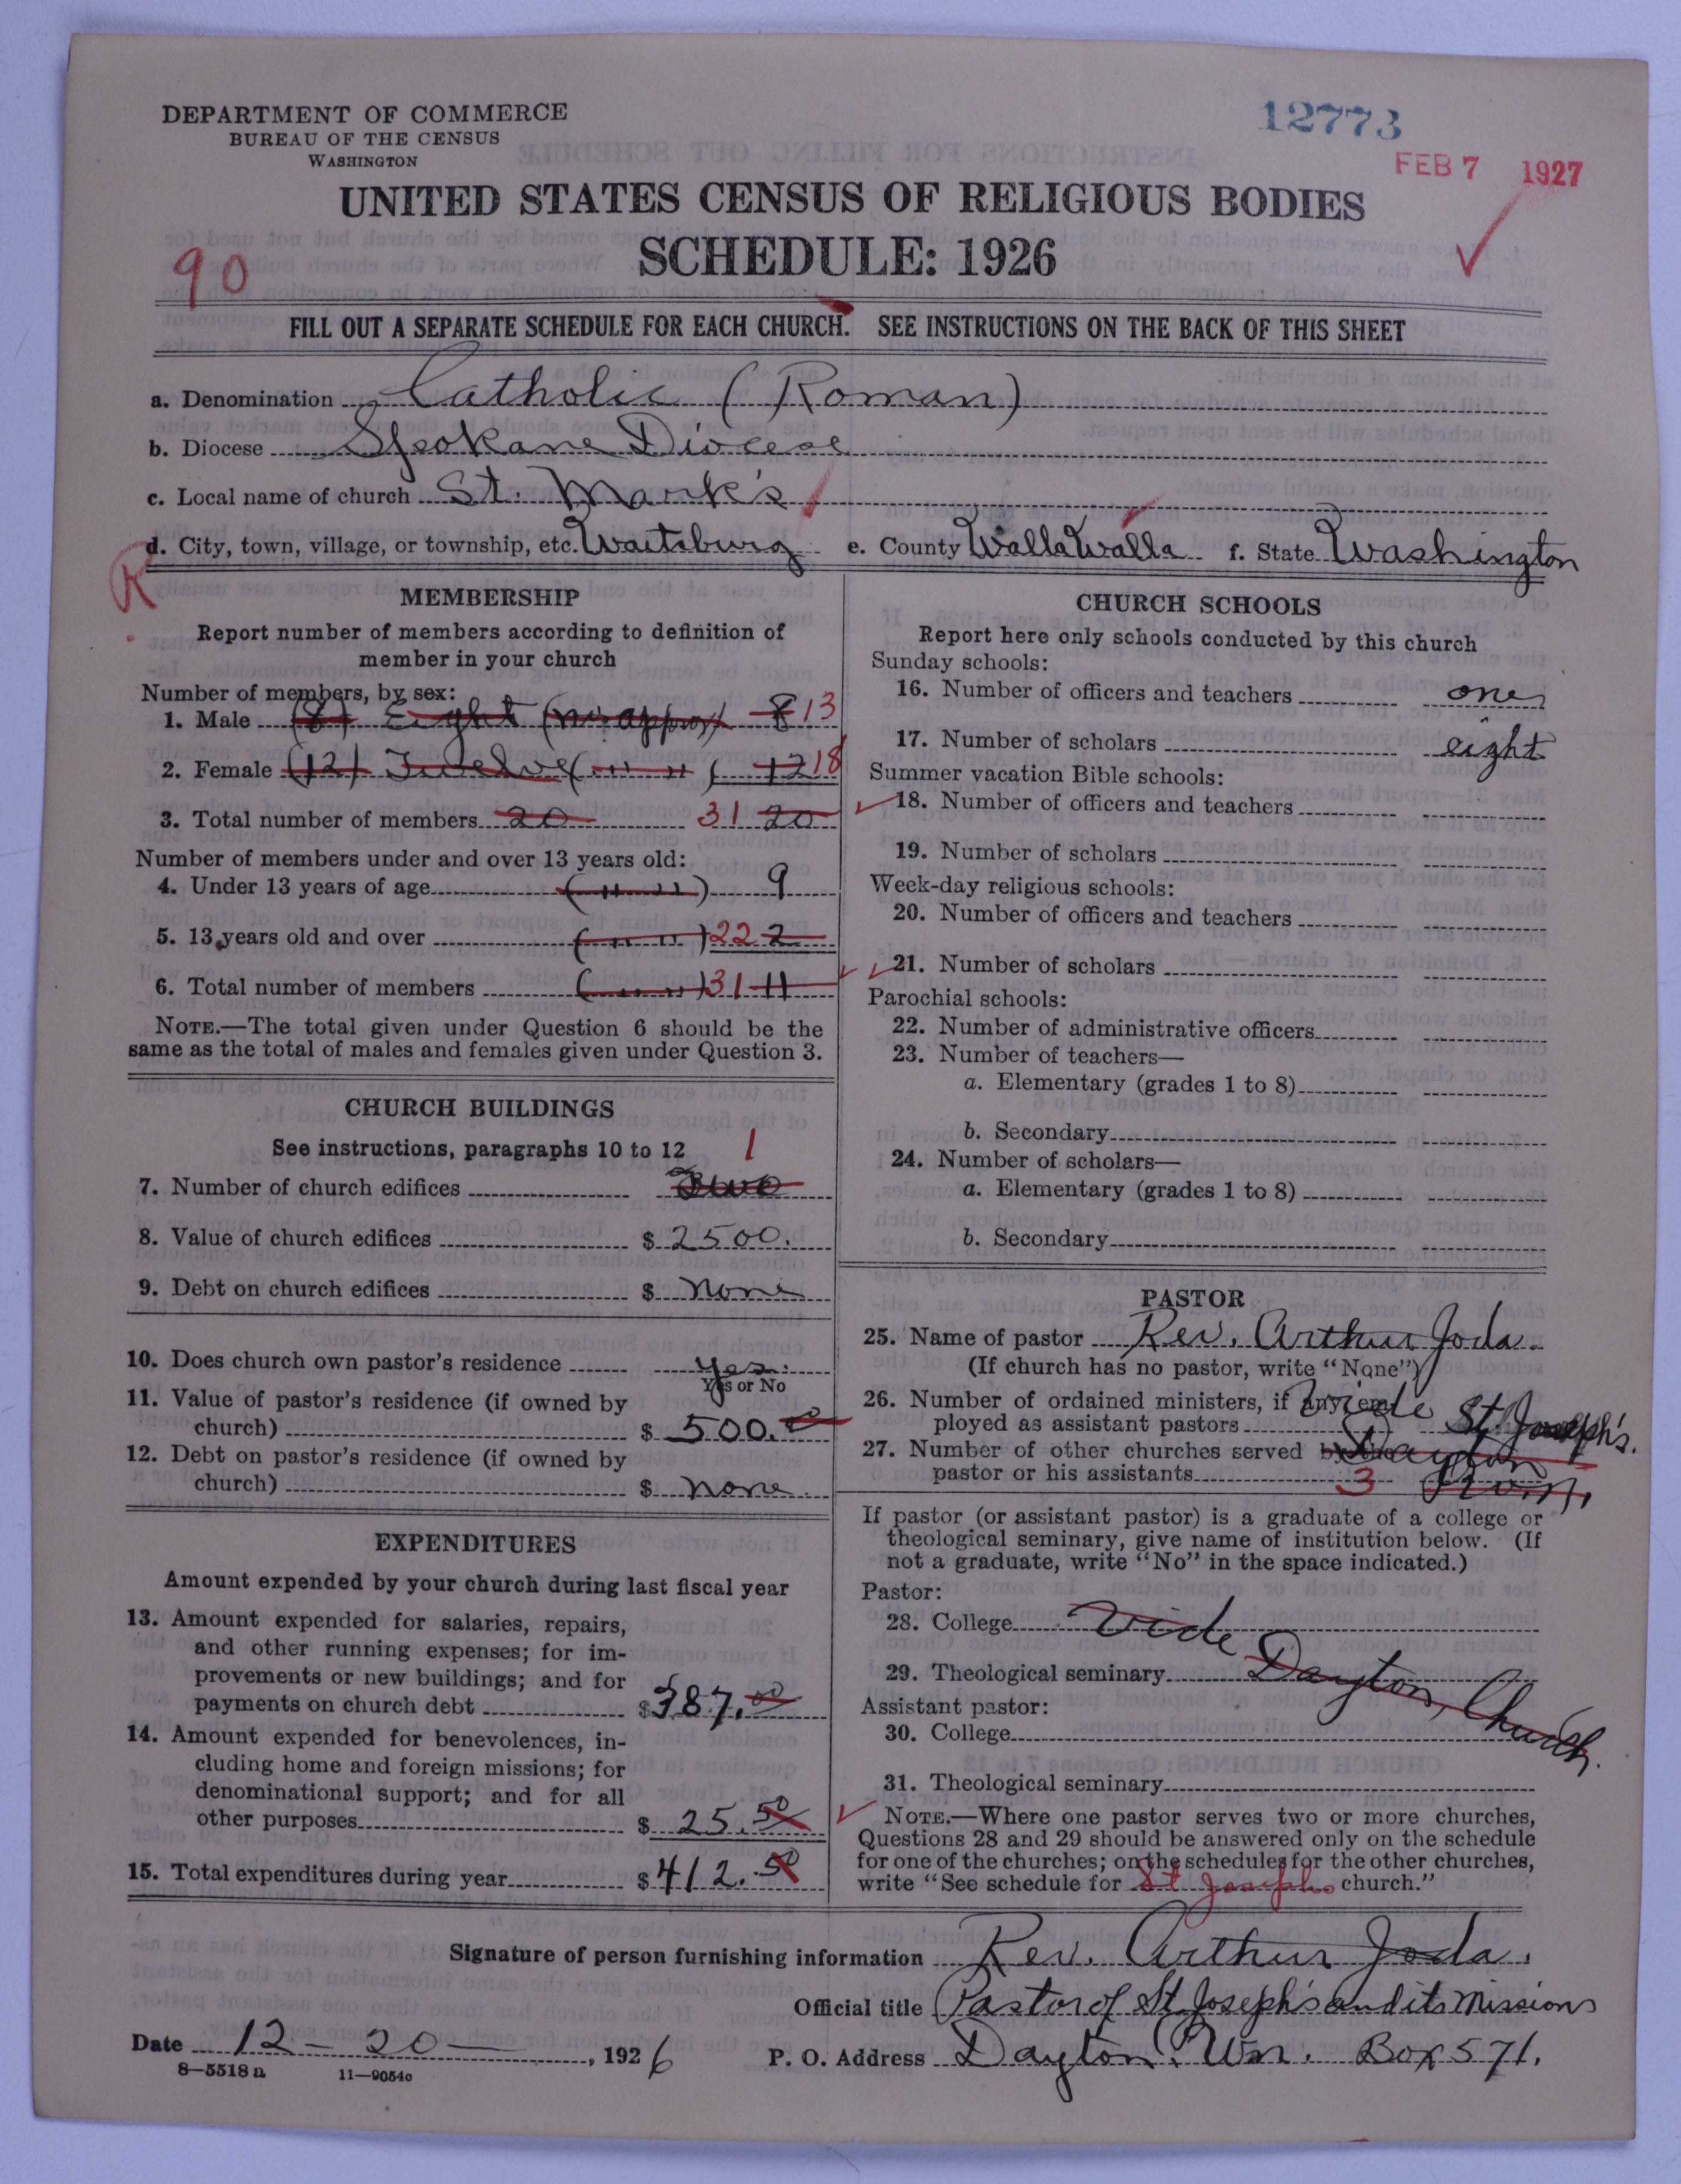 DEPARTMENT OF COMMERCE
BUREAU OF THE CENSUS
WASHINGTON
12773
FEB 7 1927
UNITED STATES CENSUS OF RELIGIOUS BODIES
SCHEDULE: 1926
90
FILL OUT A SEPARATE SCHEDULE FOR EACH CHURCH. SEE INSTRUCTIONS ON THE BACK OF THIS SHEET
a. Denomination Catholic (Roman)
b. Diocese Spokane Diocese
c. Local name of church St. Mark's
d. City, town, village, or township, etc. Waitsburg e. County Walla Walla f. State Washington
R
MEMBERSHIP
Report number of members according to definition of
member in your church
Number of members, by sex:
1. Male (8) Eight (no. approx) 8 13
2. Female (12) Twelve ( " " ) 12 18
3. Total number of members 20 31 20
Number of members under and over 13 years old:
4. Under 13 years of age ( " " ) 9
5. 13 years old and over ( " " ) 22 2
6. Total number of members ( " " ) 31 11
NOTE.—The total given under Question 6 should be the
same as the total of males and females given under Question 3.
CHURCH BUILDINGS
See instructions, paragraphs 10 to 12
1
7. Number of church edifices Two
8. Value of church edifices $ 2500.
9. Debt on church edifices $ none
10. Does church own pastor's residence Yes.
Yes or No
11. Value of pastor's residence (if owned by
church) $ 500.00
12. Debt on pastor's residence (if owned by
church) $ none.
EXPENDITURES
Amount expended by your church during last fiscal year
13. Amount expended for salaries, repairs,
and other running expenses; for im-
provements or new buildings; and for
payments on church debt $ 387.00
14. Amount expended for benevolences, in-
cluding home and foreign missions; for
denominational support; and for all
other purposes $ 25.50
15. Total expenditures during year $ 412.50
CHURCH SCHOOLS
Report here only schools conducted by this church
Sunday schools:
16. Number of officers and teachers one
17. Number of scholars eight
Summer vacation Bible schools:
18. Number of officers and teachers
19. Number of scholars
Week-day religious schools:
20. Number of officers and teachers
21. Number of scholars
Parochial schools:
22. Number of administrative officers
23. Number of teachers—
a. Elementary (grades 1 to 8)
b. Secondary
24. Number of scholars—
a. Elementary (grades 1 to 8)
b. Secondary
PASTOR
25. Name of pastor Rev. Arthur Joda.
(If church has no pastor, write "None")
26. Number of ordained ministers, if any, em- Vide St. Joseph's.
ployed as assistant pastors
27. Number of other churches served by Dayton
pastor or his assistants 3
If pastor (or assistant pastor) is a graduate of a college or
theological seminary, give name of institution below. (If
not a graduate, write "No" in the space indicated.)
Pastor:
28. College Vide
29. Theological seminary Dayton, Church.
Assistant pastor:
30. College
31. Theological seminary
NOTE.—Where one pastor serves two or more churches,
Questions 28 and 29 should be answered only on the schedule
for one of the churches; on the schedules for the other churches,
write "See schedule for St Josephs church."
Signature of person furnishing information Rev. Arthur Joda.
Official title Pastor of St. Joseph's and its missions
Date 12 - 20 - , 1926 P. O. Address Dayton, Wn. Box 571.
8—5518 a 11—9054c